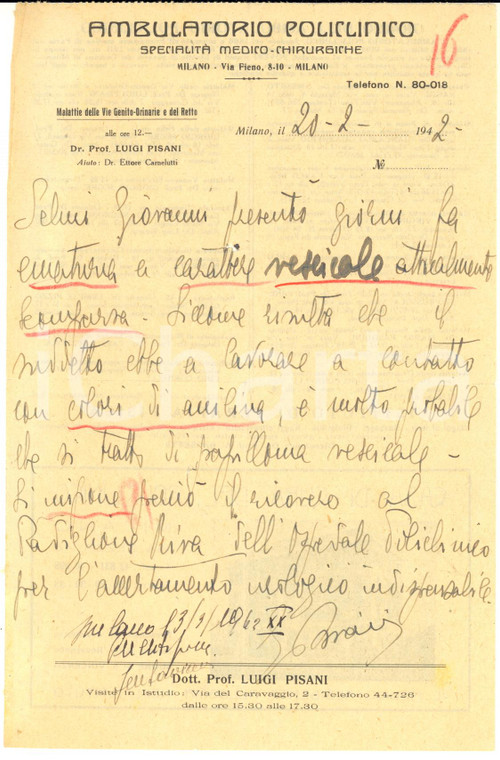 AMBULATORIO POLICLINICO
SPECIALITÀ MEDICO-CHIRURGICHE
MILANO - Via Fieno, 8-10 - MILANO
16
Telefono N. 80-018
Malattie delle Vie Genito-Orinarie e del Retto
alle ore 12.—
Dr. Prof. LUIGI PISANI
Aiuto: Dr. Ettore Camelutti
Milano, il 20-2- 1942-
No
Selmi Giovanni presentò giorni fa
ematuria a carattere vescicale attualmente
scomparsa - Siccome risulta che il
suddetto ebbe a lavorare a contatto
con colori di anilina, è molto probabile
che si tratti di papilloma vescicale -
Si impone perciò il ricovero al
Padiglione Riva dell'Ospedale Policlinico
per l'accertamento urologico indispensabile.
Milano 13/3/1942 XX
Pisani
Dott. Prof. LUIGI PISANI
Visite in Istudio: Via del Caravaggio, 2 - Telefono 44-726
dalle ore 15.30 alle 17.30
iCharta